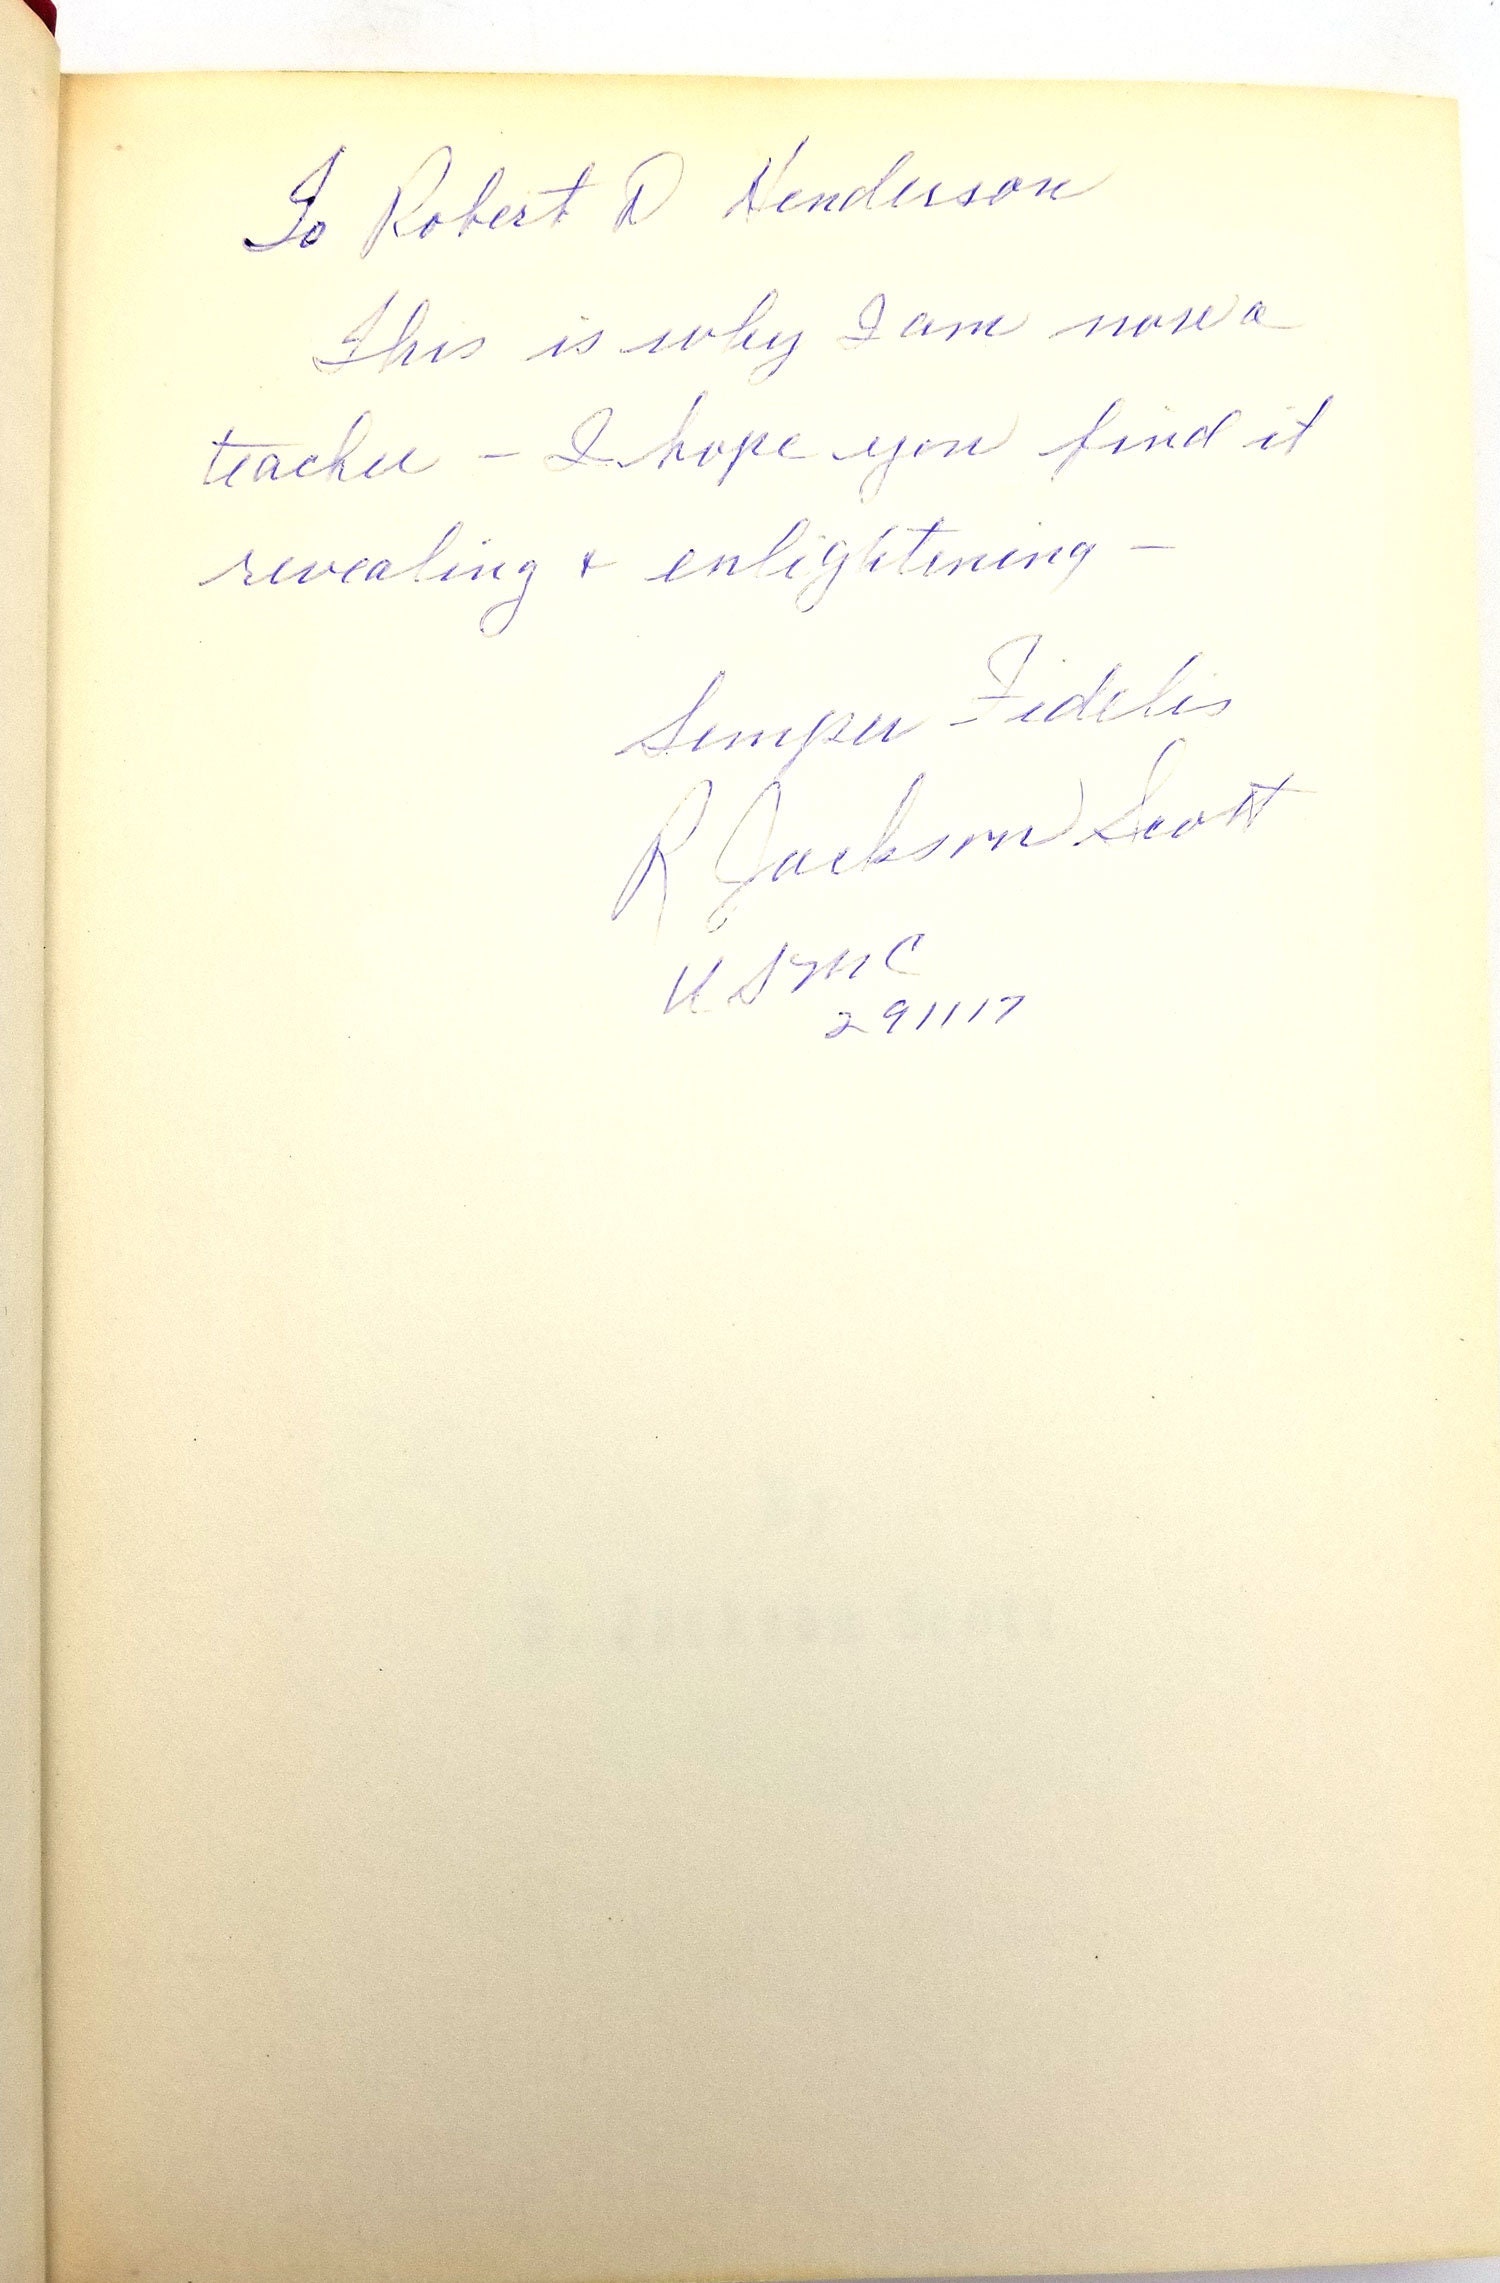 To Robert D Henderson
This is why I am now a
teacher - I hope you find it
revealing + enlightening -
Semper Fidelis
R Jackson Scott
USMC
291117